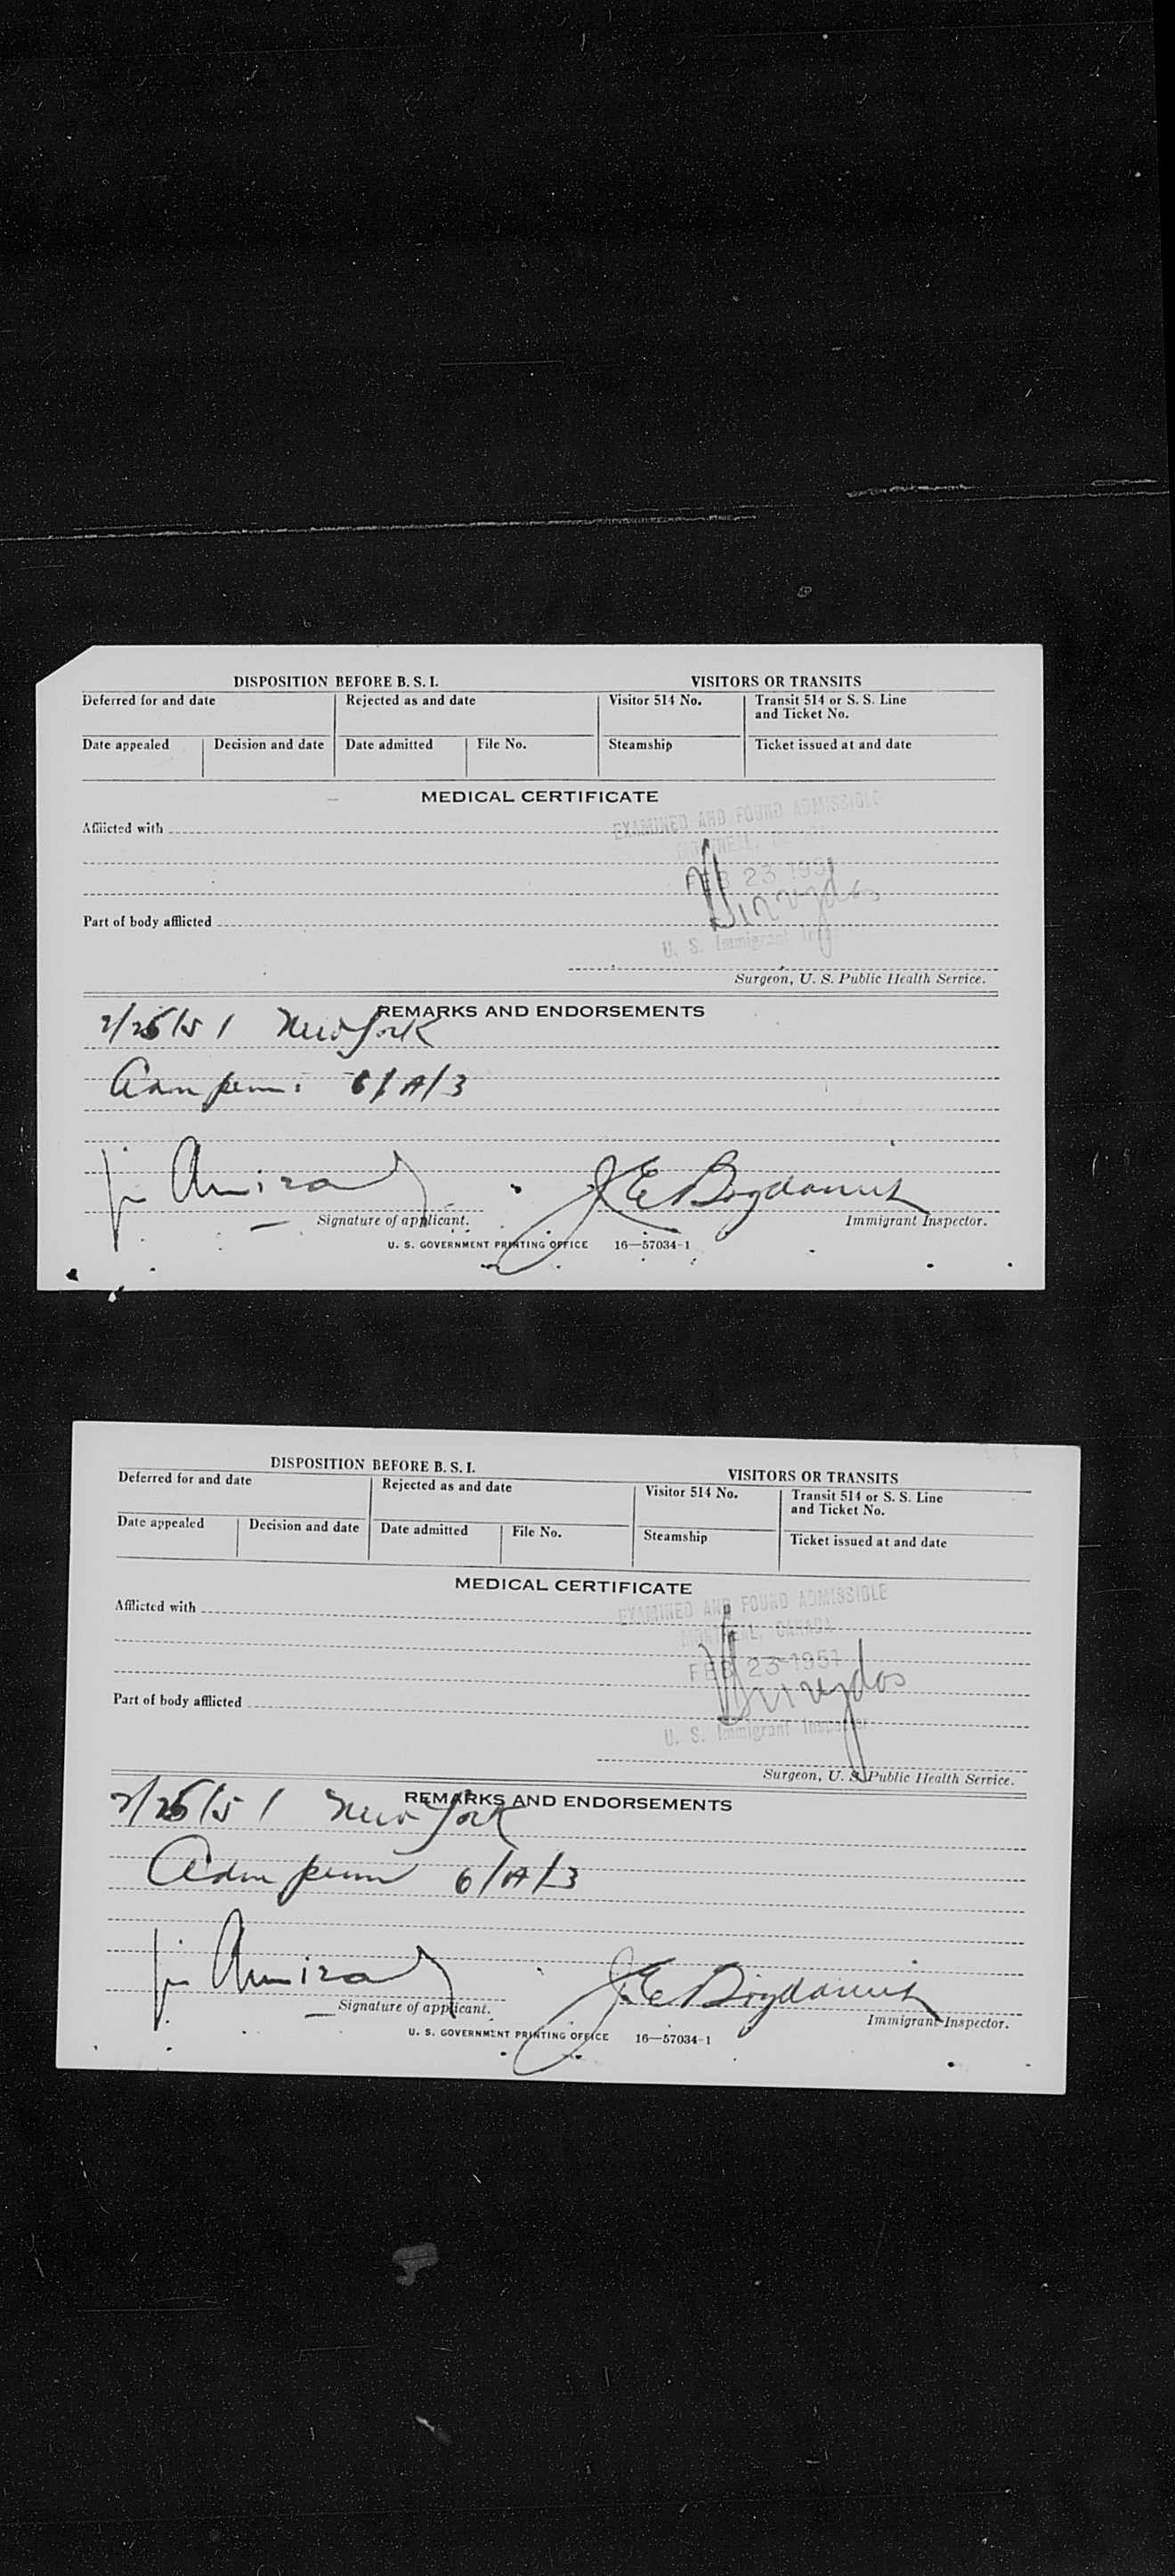 DISPOSITION BEFORE B. S. I. VISITORS OR TRANSITS
Deferred for and date Rejected as and date Visitor 514 No. Transit 514 or S. S. Line and Ticket No.
Date appealed Decision and date Date admitted File No. Steamship Ticket issued at and date
MEDICAL CERTIFICATE
EXAMINED AND FOUND ADMISSIBLE
Afflicted with
MONTREAL, CANADA
FEB 23 1951
Part of body afflicted
U. S. Immigrant Inspector
Surgeon, U. S. Public Health Service.
REMARKS AND ENDORSEMENTS
2/25/51 New York
Adm perm: 6/A/3
J E
Signature of applicant. Immigrant Inspector.
U. S. GOVERNMENT PRINTING OFFICE 16—57034-1
DISPOSITION BEFORE B. S. I. VISITORS OR TRANSITS
Deferred for and date Rejected as and date Visitor 514 No. Transit 514 or S. S. Line and Ticket No.
Date appealed Decision and date Date admitted File No. Steamship Ticket issued at and date
MEDICAL CERTIFICATE
EXAMINED AND FOUND ADMISSIBLE
Afflicted with
MONTREAL, CANADA
FEB 23 1951
Part of body afflicted
U. S. Immigrant Inspector
Surgeon, U. S. Public Health Service.
REMARKS AND ENDORSEMENTS
2/25/51 New York
Adm perm 6/A/3
J E
Signature of applicant. Immigrant Inspector.
U. S. GOVERNMENT PRINTING OFFICE 16—57034-1